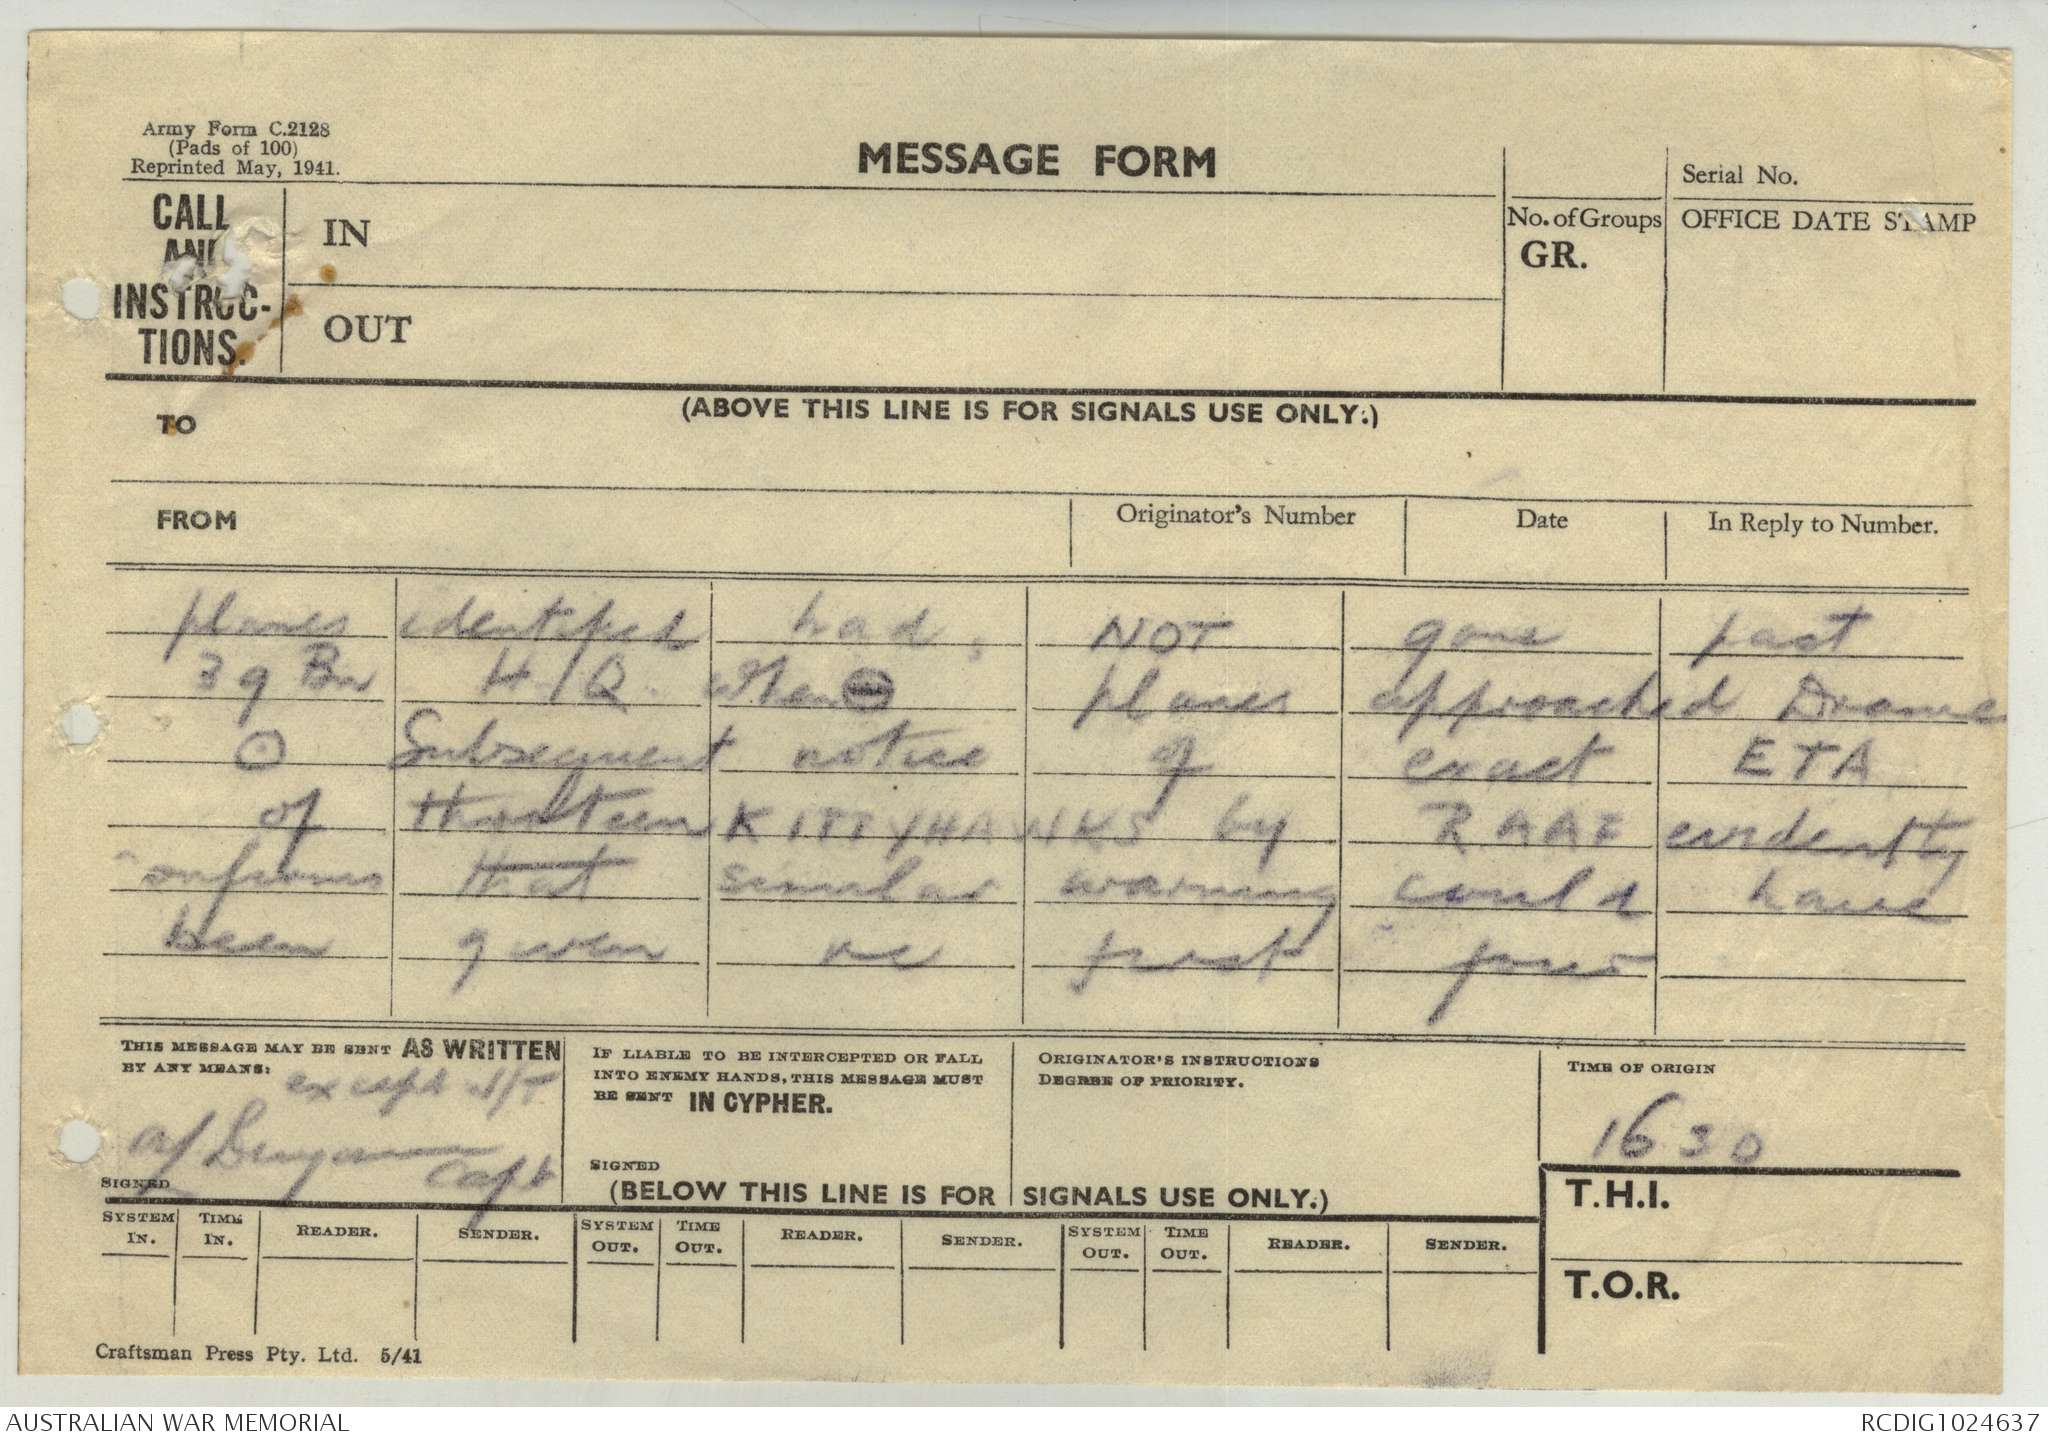 Army Form C.2128
(Pads of 100)
Reprinted May, 1941.
MESSAGE FORM
Serial No.
CALL
AND
INSTRUC-
TIONS.
IN
OUT
No. of Groups
GR.
OFFICE DATE STAMP
(ABOVE THIS LINE IS FOR SIGNALS USE ONLY.)
TO
FROM
Originator's Number
Date
In Reply to Number.
planes identified had NOT gone past
39 Bn H.Q. when planes approached Drome
⊙ Subsequent notice of exact ETA
of thirteen KITTYHAWKS by RAAF evidently
that similar warning could have
been given re first four
THIS MESSAGE MAY BE SENT AS WRITTEN
BY ANY MEANS:
except W/T
Capt
SIGNED
IF LIABLE TO BE INTERCEPTED OR FALL
INTO ENEMY HANDS, THIS MESSAGE MUST
BE SENT IN CYPHER.
SIGNED
ORIGINATOR'S INSTRUCTIONS
DEGREE OF PRIORITY.
TIME OF ORIGIN
1630
(BELOW THIS LINE IS FOR SIGNALS USE ONLY.)
T.H.I.
T.O.R.
SYSTEM IN. TIME IN. READER. SENDER. SYSTEM OUT. TIME OUT. READER. SENDER. SYSTEM OUT. TIME OUT. READER. SENDER.
Craftsman Press Pty. Ltd. 5/41
AUSTRALIAN WAR MEMORIAL
RCDIG1024637